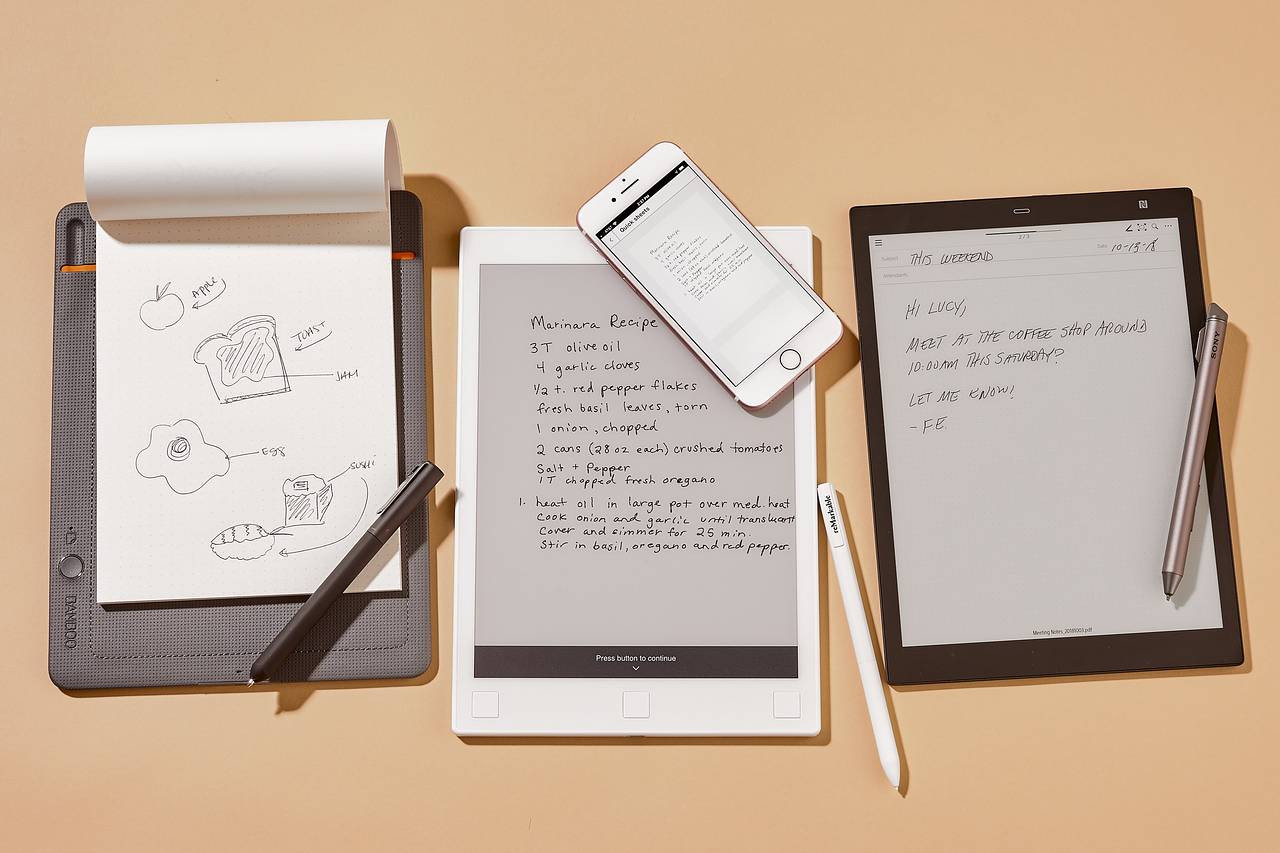 APPLE
TOAST
JAM
EGG
SUSHI
BAMBOO
Quick sheets
Marinara Recipe
Marinara Recipe
3 T olive oil
4 garlic cloves
1/2 t. red pepper flakes
fresh basil leaves, torn
1 onion, chopped
2 cans (28 oz each) crushed tomatoes
Salt + Pepper
1T chopped fresh oregano
1. heat oil in large pot over med. heat
cook onion and garlic until translucent
cover and simmer for 25 min.
Stir in basil, oregano and red pepper.
Press button to continue
reMarkable
2/3
Subject THIS WEEKEND
Date 10-13-18
Attendants
HI LUCY,
MEET AT THE COFFEE SHOP AROUND
10:00AM THIS SATURDAY?
LET ME KNOW!
- F.E.
Meeting Notes_20181003.pdf
SONY